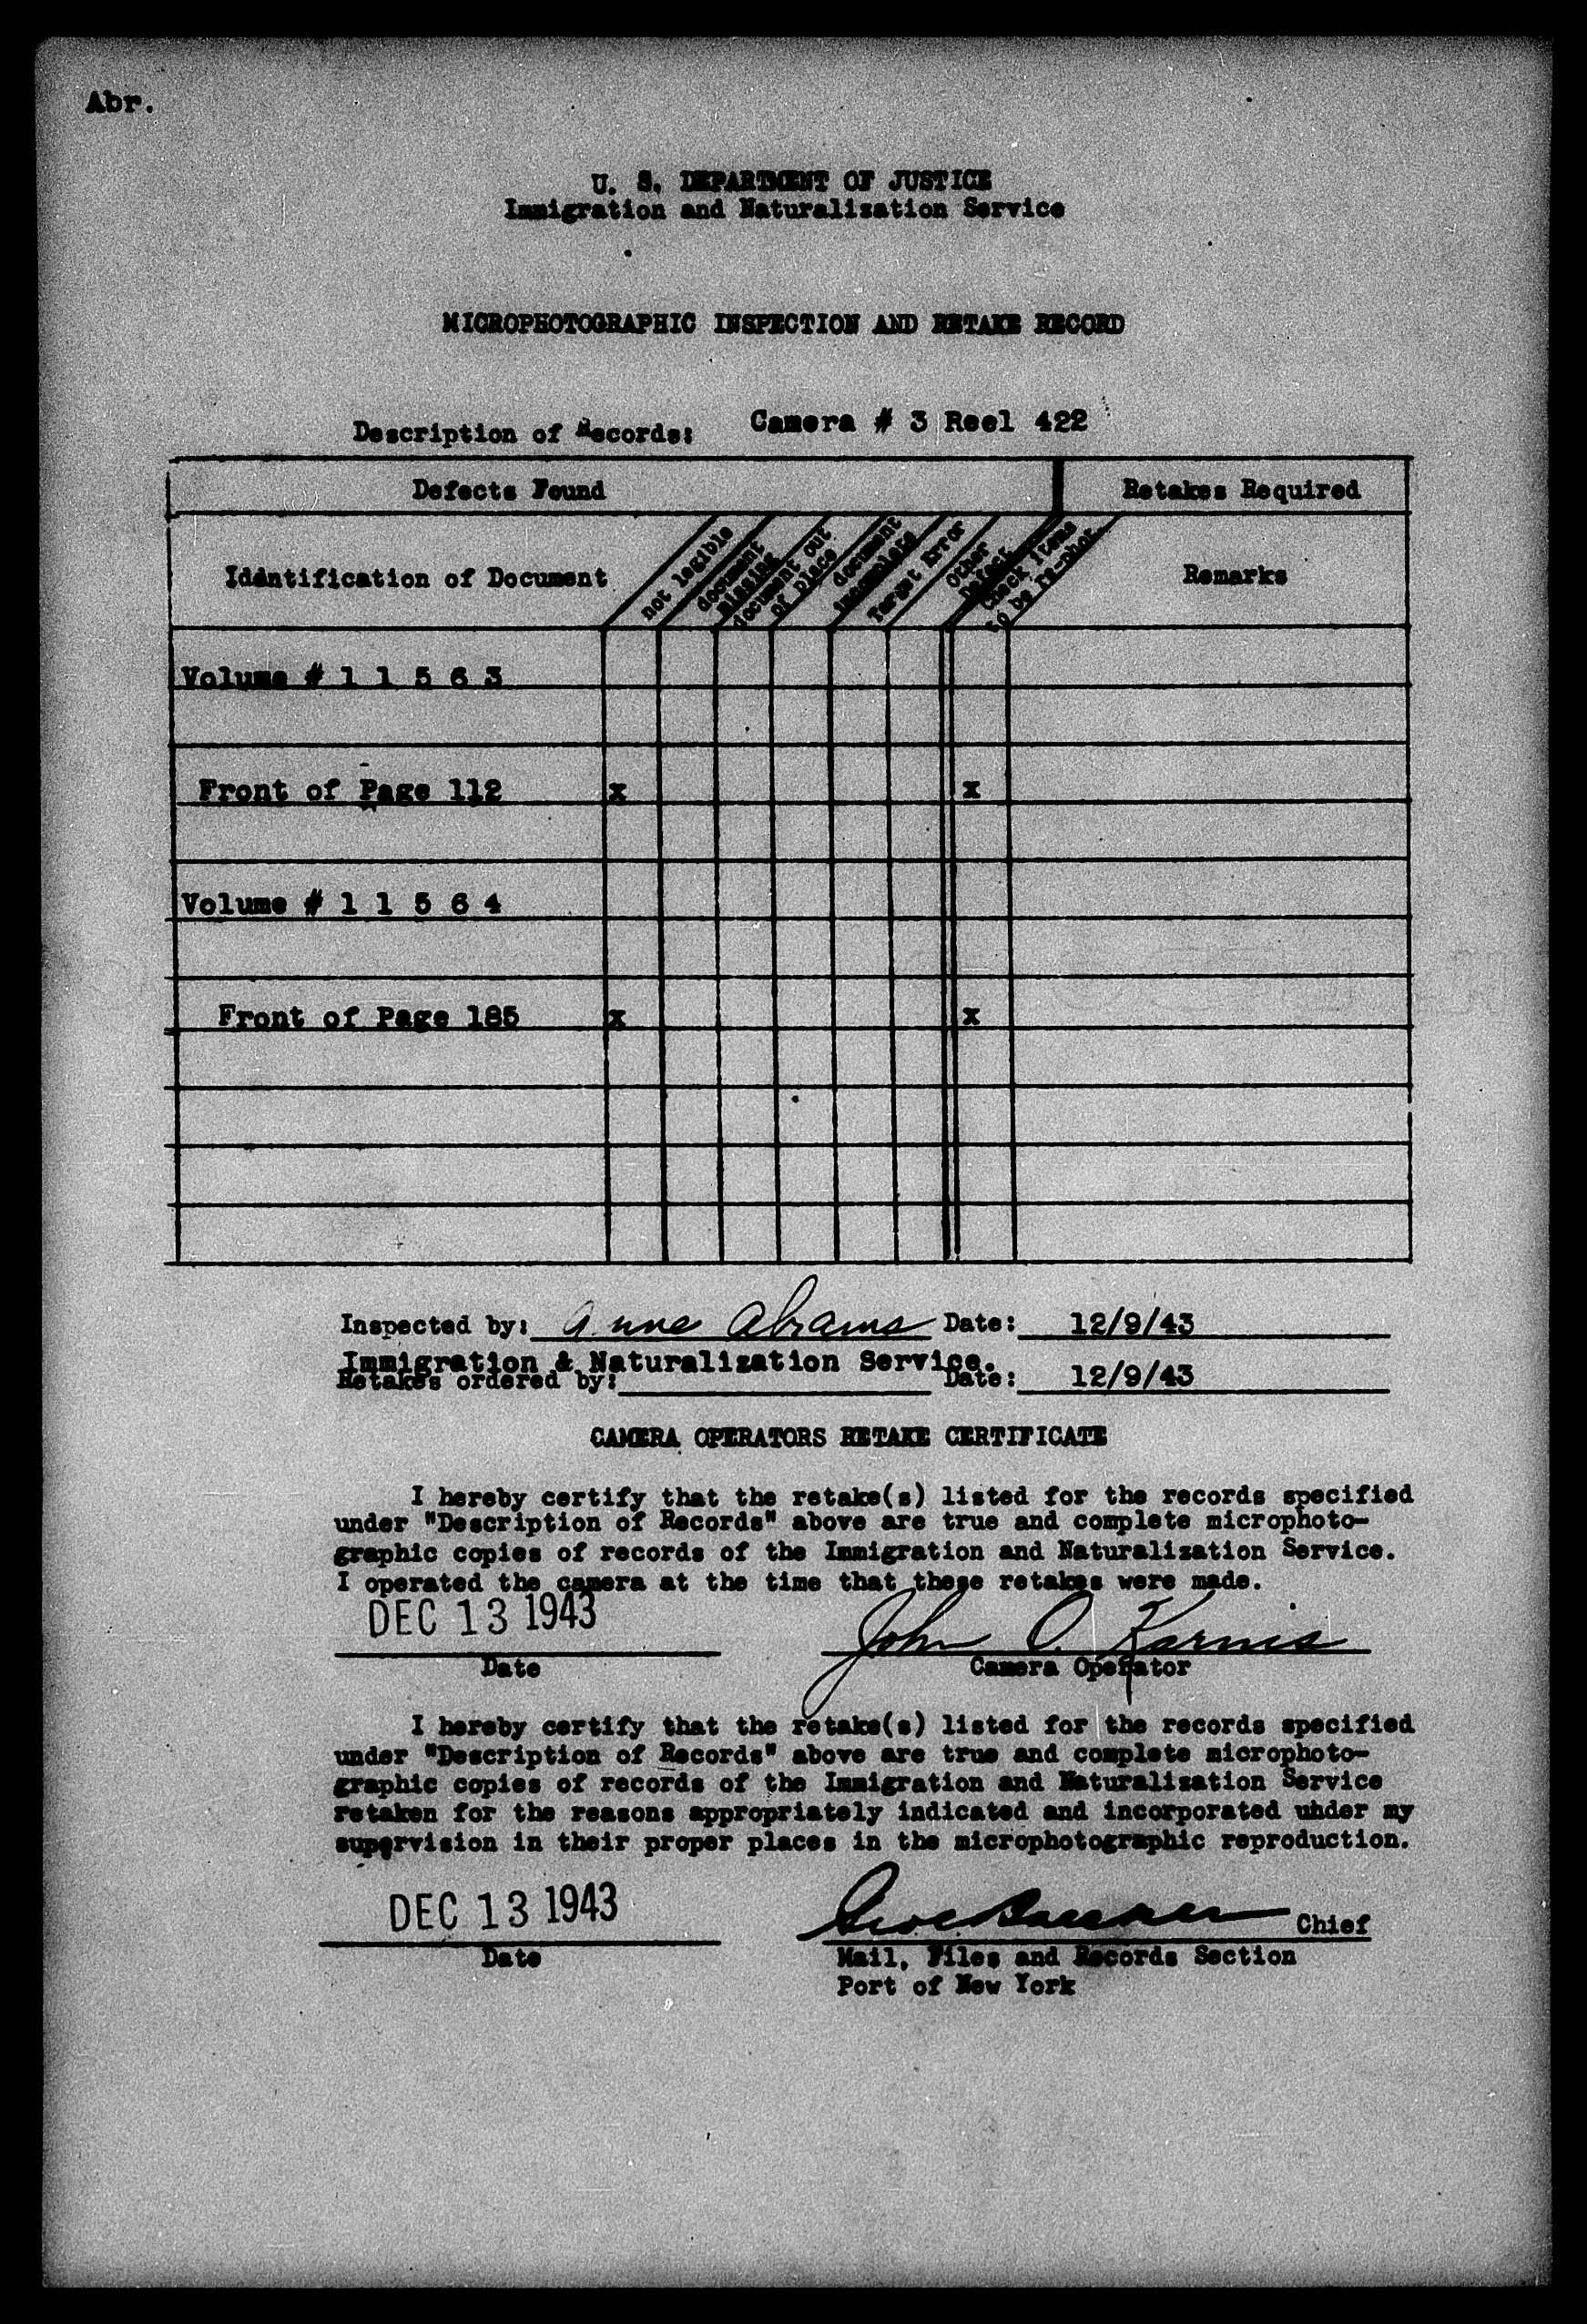 Abr.
U. S. DEPARTMENT OF JUSTICE
Immigration and Naturalization Service
MICROPHOTOGRAPHIC INSPECTION AND RETAKE RECORD
Description of Records: Camera # 3 Reel 422
Defects Found Retakes Required
Identification of Document
not legible
document missing
document out of place
document incomplete
Target Error
Other Defect
Check items to be re-phot.
Remarks
Volume # 1 1 5 6 3
Front of Page 112 x x
Volume # 1 1 5 6 4
Front of Page 185 x x
Inspected by: Anne Abrams Date: 12/9/43
Immigration & Naturalization Service.
Retakes ordered by: Date: 12/9/43
CAMERA OPERATORS RETAKE CERTIFICATE
I hereby certify that the retake(s) listed for the records specified
under "Description of Records" above are true and complete microphoto-
graphic copies of records of the Immigration and Naturalization Service.
I operated the camera at the time that these retakes were made.
DEC 13 1943 John O. Karnis
Date Camera Operator
I hereby certify that the retake(s) listed for the records specified
under "Description of Records" above are true and complete microphoto-
graphic copies of records of the Immigration and Naturalization Service
retaken for the reasons appropriately indicated and incorporated uhder my
supervision in their proper places in the microphotographic reproduction.
DEC 13 1943 Chief
Date Mail, Files and Records Section
Port of New York